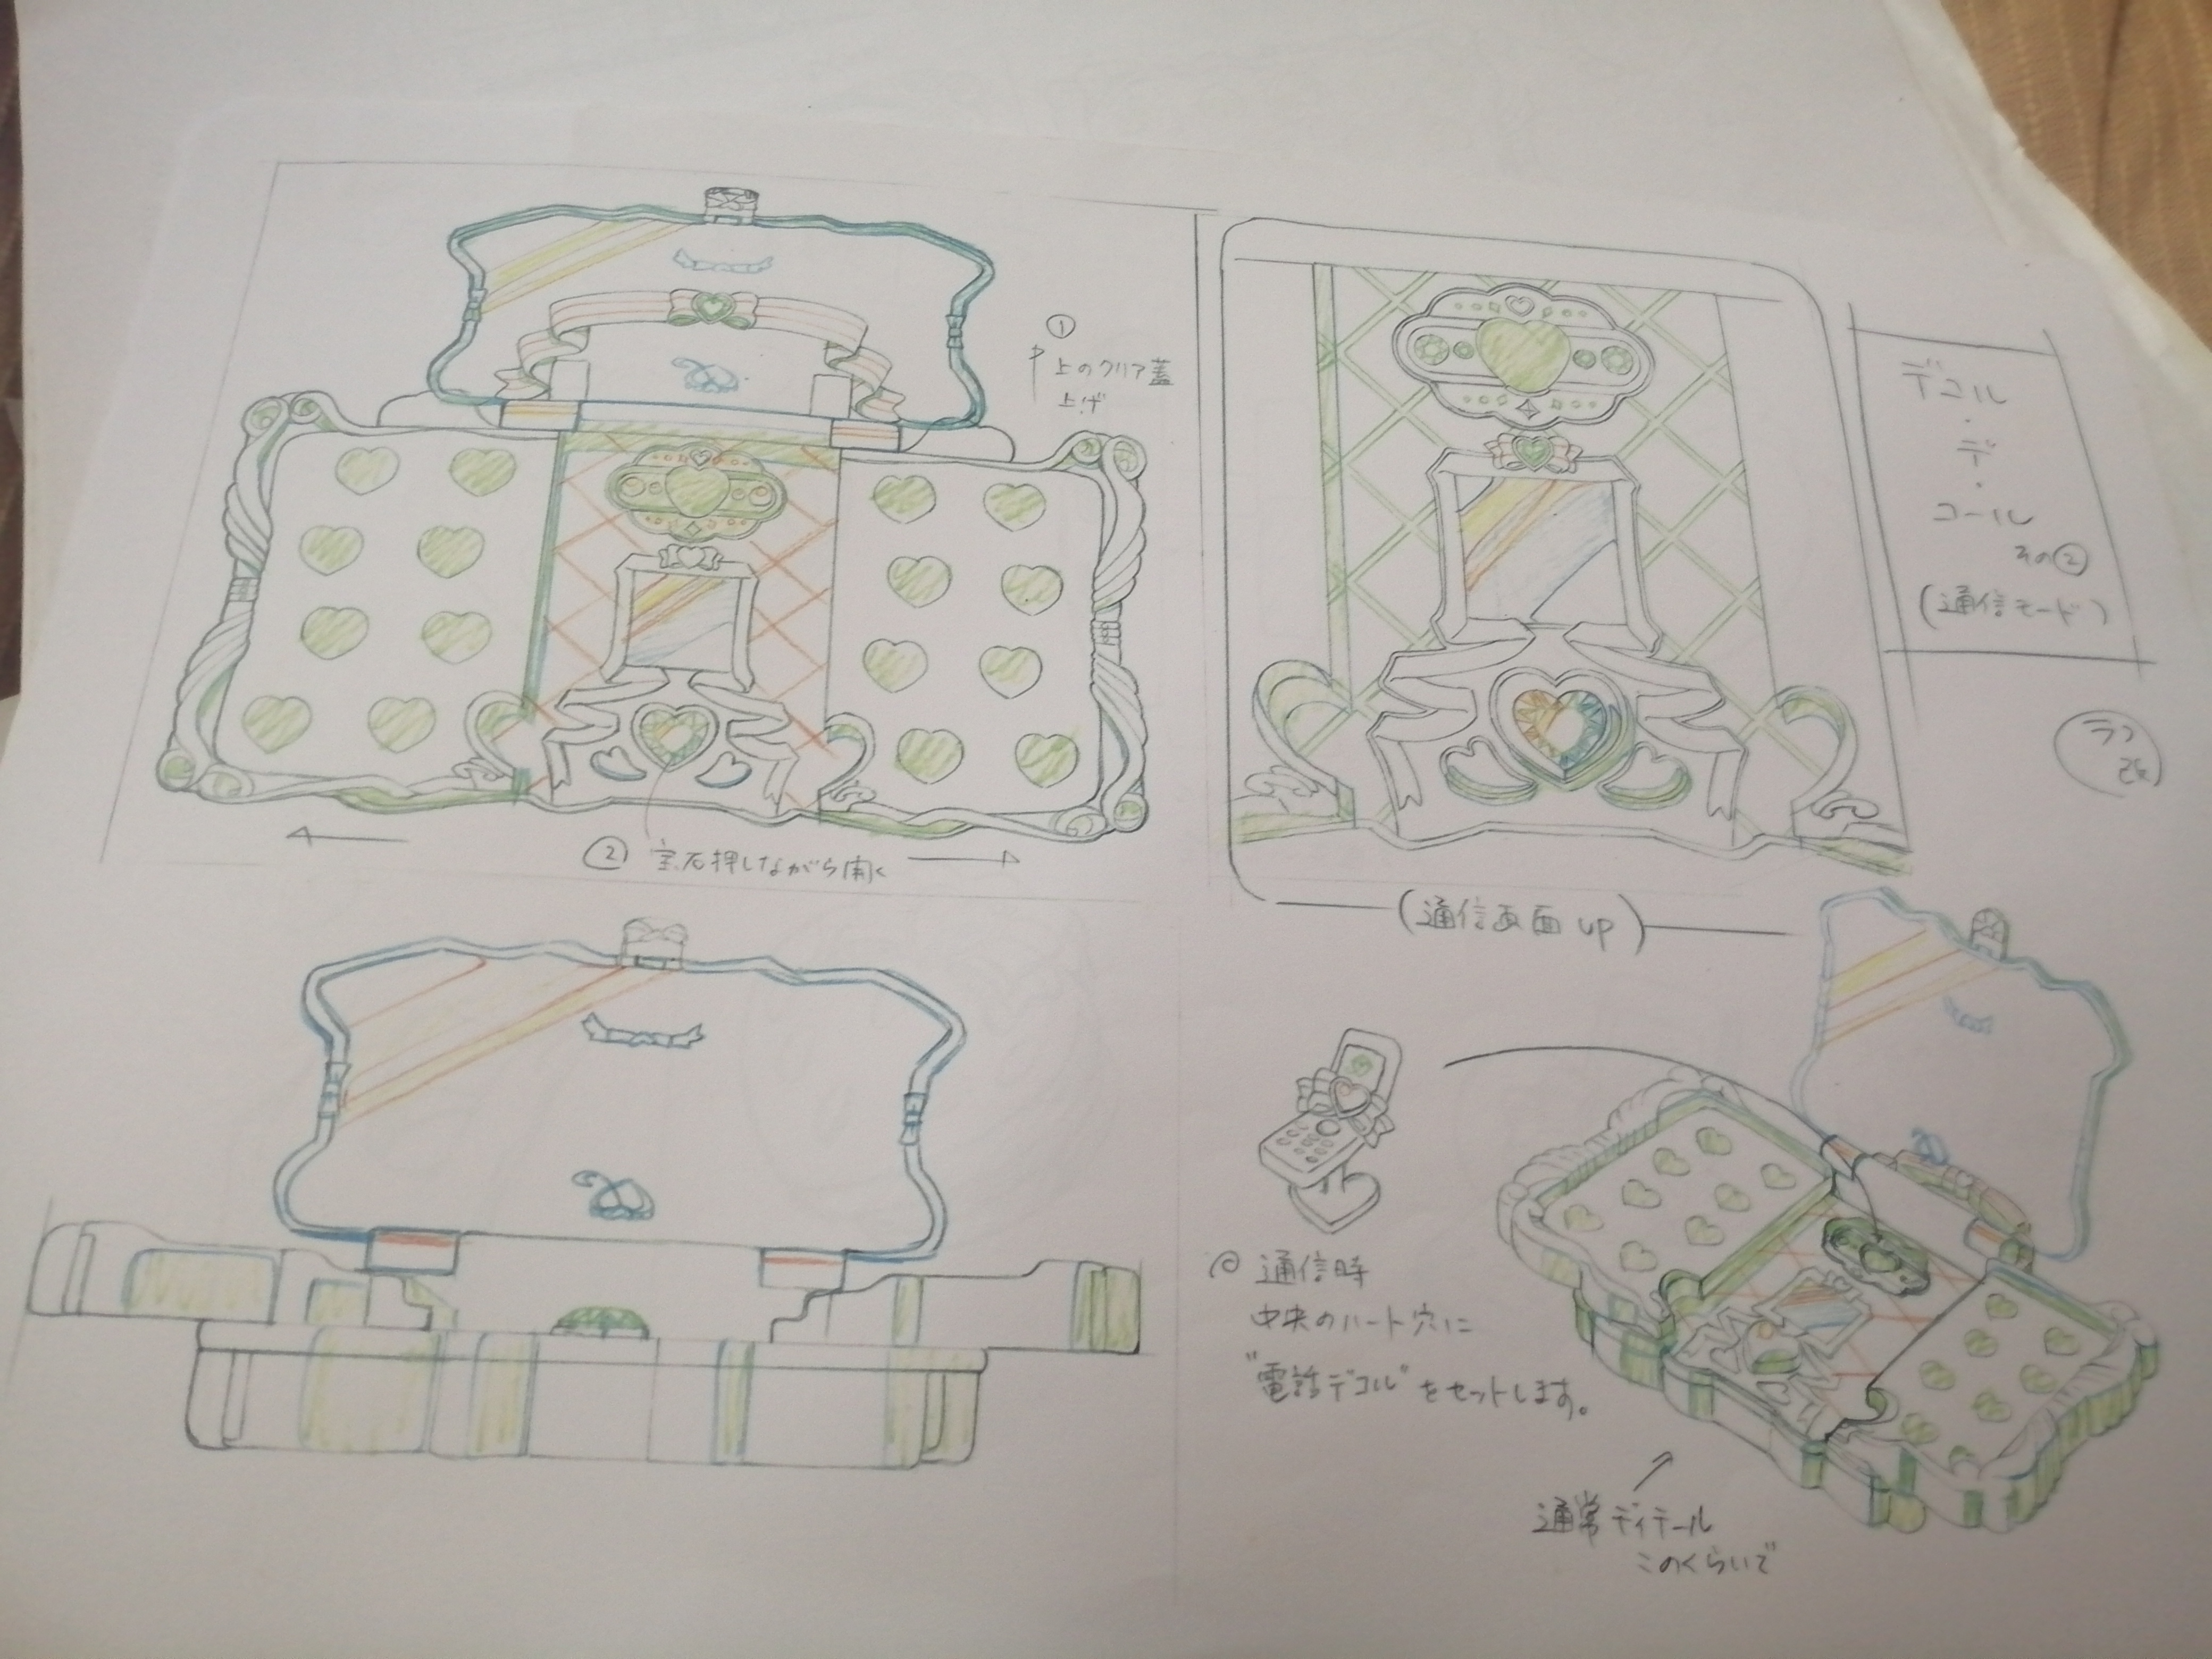 ①
上のクリア蓋
上げ
② 宝石押しながら開く
デコル
・
デ
・
コール
その②
(通信モード)
ラフ
(通信画面up)
◎ 通信時
中央のハート穴に
"電話デコル"をセットします。
通常ディテール
このくらいで